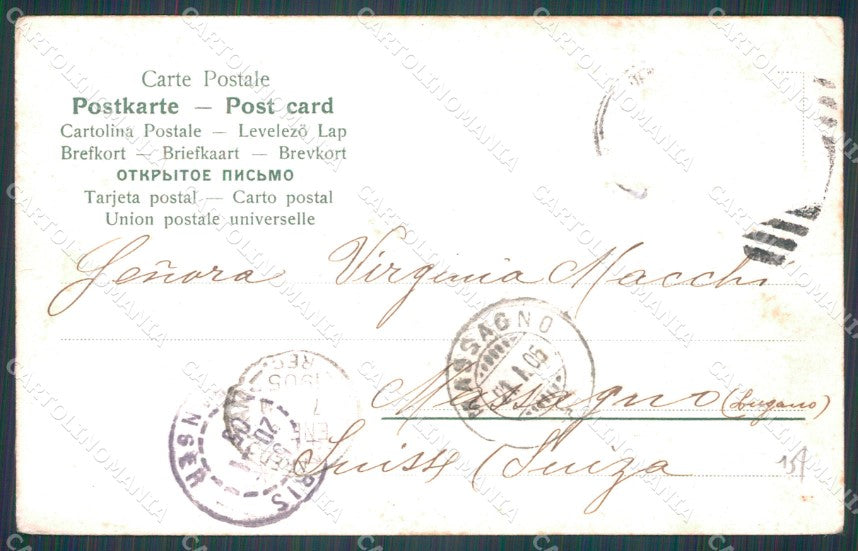 Carte Postale
Postkarte — Post card
Cartolina Postale — Levelező Lap
Brefkort — Briefkaart — Brevkort
ОТКРЫТОЕ ПИСЬМО
Tarjeta postal — Carto postal
Union postale universelle
Señora Virginia Macchi
MASSAGNO
Massagno (Lugano)
Suisse (Suiza
157
CARTOLINOMANIA